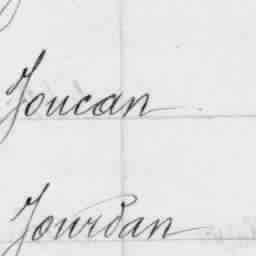 Joucan
Jourdan